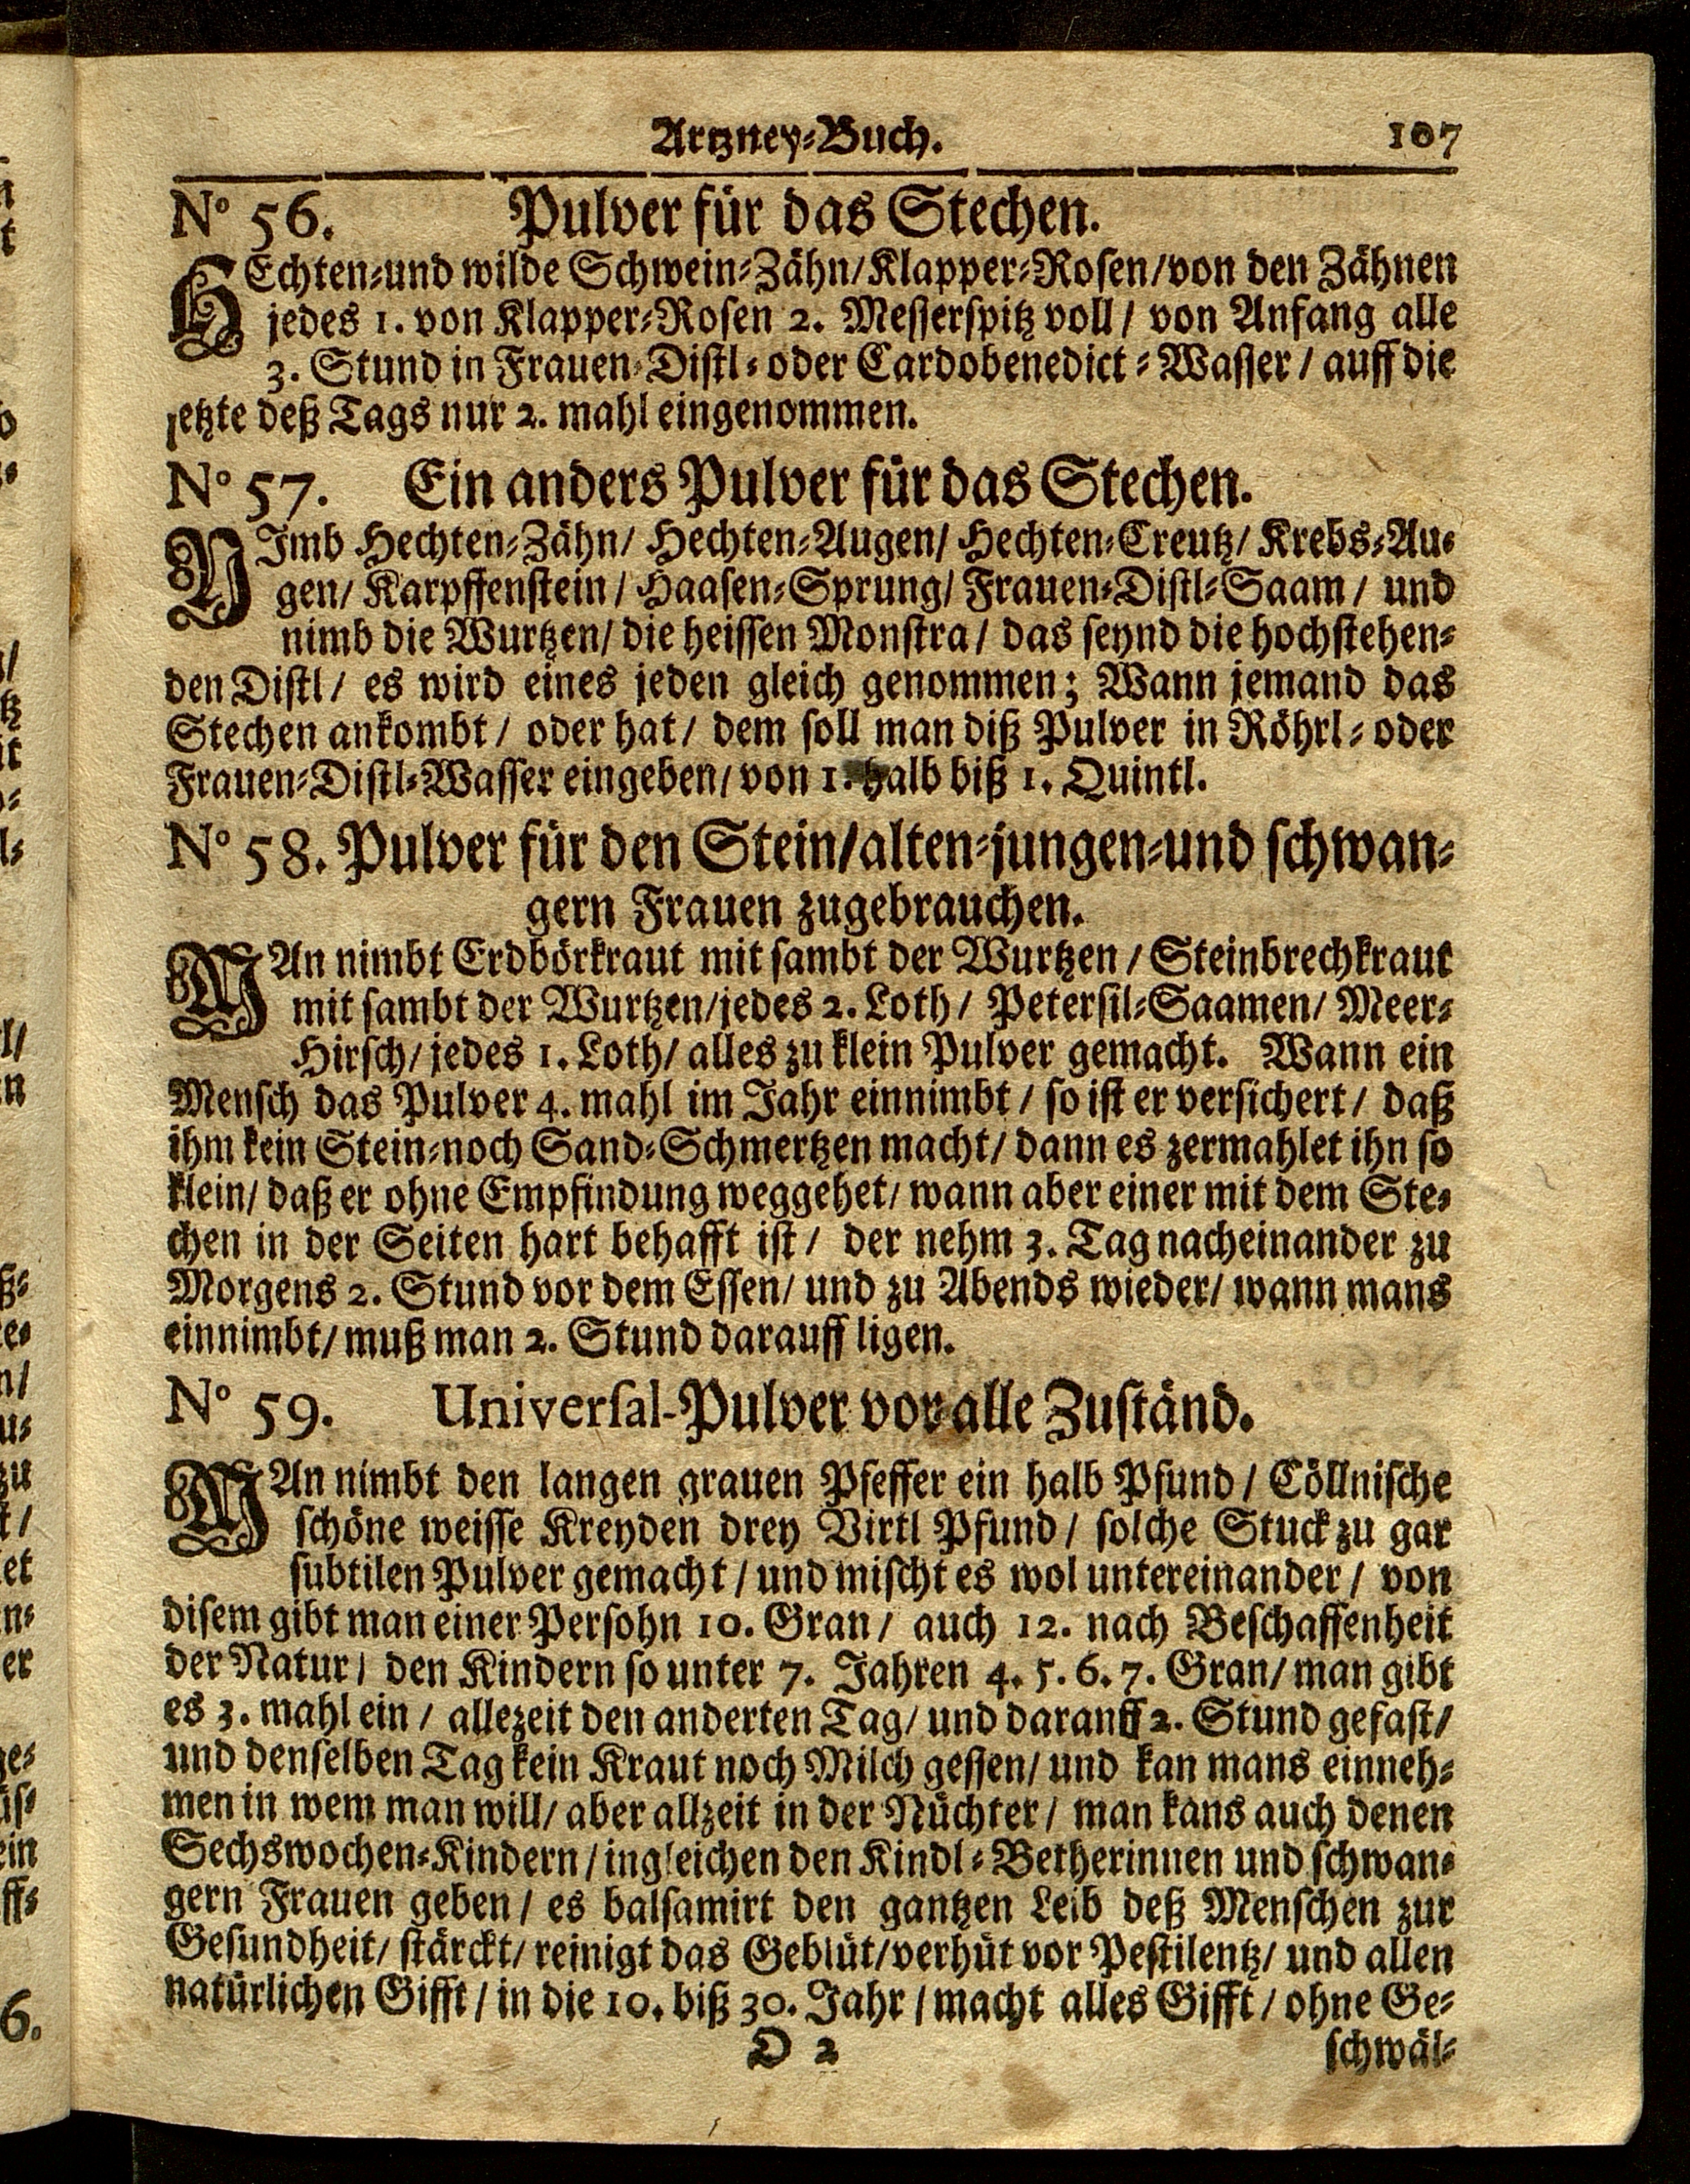 Artzney-Buch. 107
No 56. Pulver für das Stechen.
HEchten-und wilde Schwein-Zähn/Klapper-Rosen/von den Zähnen
jedes 1. von Klapper-Rosen 2. Messerspitz voll / von Anfang alle
3. Stund in Frauen-Distl- oder Cardobenedict-Wasser / auff die
letzte deß Tags nur 2. mahl eingenommen.
No 57. Ein anders Pulver für das Stechen.
NImb Hechten-Zähn/ Hechten-Augen/ Hechten-Creutz/ Krebs-Au-
gen/ Karpffenstein / Haasen-Sprung/ Frauen-Distl-Saam / und
nimb die Wurtzen/ die heissen Monstra / das seynd die hochstehen-
den Distl / es wird eines jeden gleich genommen; Wann jemand das
Stechen ankombt / oder hat / dem soll man diß Pulver in Röhrl- oder
Frauen-Distl-Wasser eingeben/ von 1. halb biß 1. Quintl.
No 58. Pulver für den Stein/alten-jungen-und schwan-
gern Frauen zugebrauchen.
MAn nimbt Erdbörkraut mit sambt der Wurtzen / Steinbrechkraut
mit sambt der Wurtzen/jedes 2. Loth / Petersil-Saamen/ Meer-
Hirsch/ jedes 1. Loth/ alles zu klein Pulver gemacht. Wann ein
Mensch das Pulver 4. mahl im Jahr einnimbt / so ist er versichert / daß
ihm kein Stein-noch Sand-Schmertzen macht/ dann es zermahlet ihn so
klein/ daß er ohne Empfindung weggehet/ wann aber einer mit dem Ste-
chen in der Seiten hart behafft ist / der nehm 3. Tag nacheinander zu
Morgens 2. Stund vor dem Essen/ und zu Abends wieder/ wann mans
einnimbt/ muß man 2. Stund darauff ligen.
No 59. Universal-Pulver vor alle Zuständ.
MAn nimbt den langen grauen Pfeffer ein halb Pfund / Cöllnische
schöne weisse Kreyden drey Virtl Pfund / solche Stuck zu gar
subtilen Pulver gemacht / und mischt es wol untereinander / von
disem gibt man einer Persohn 10. Gran / auch 12. nach Beschaffenheit
der Natur / den Kindern so unter 7. Jahren 4. 5. 6. 7. Gran/ man gibt
es 3. mahl ein / allezeit den anderten Tag/ und darauff 2. Stund gefast/
und denselben Tag kein Kraut noch Milch gessen/ und kan mans einneh-
men in wem man will/ aber allzeit in der Nüchter / man kans auch denen
Sechswochen-Kindern / ingleichen den Kindl-Betherinnen und schwan-
gern Frauen geben / es balsamirt den gantzen Leib deß Menschen zur
Gesundheit/ stärckt/ reinigt das Geblüt/verhüt vor Pestilentz/ und allen
natürlichen Gifft / in die 10. biß 30. Jahr / macht alles Gifft / ohne Ge-
D 2 schwäl-